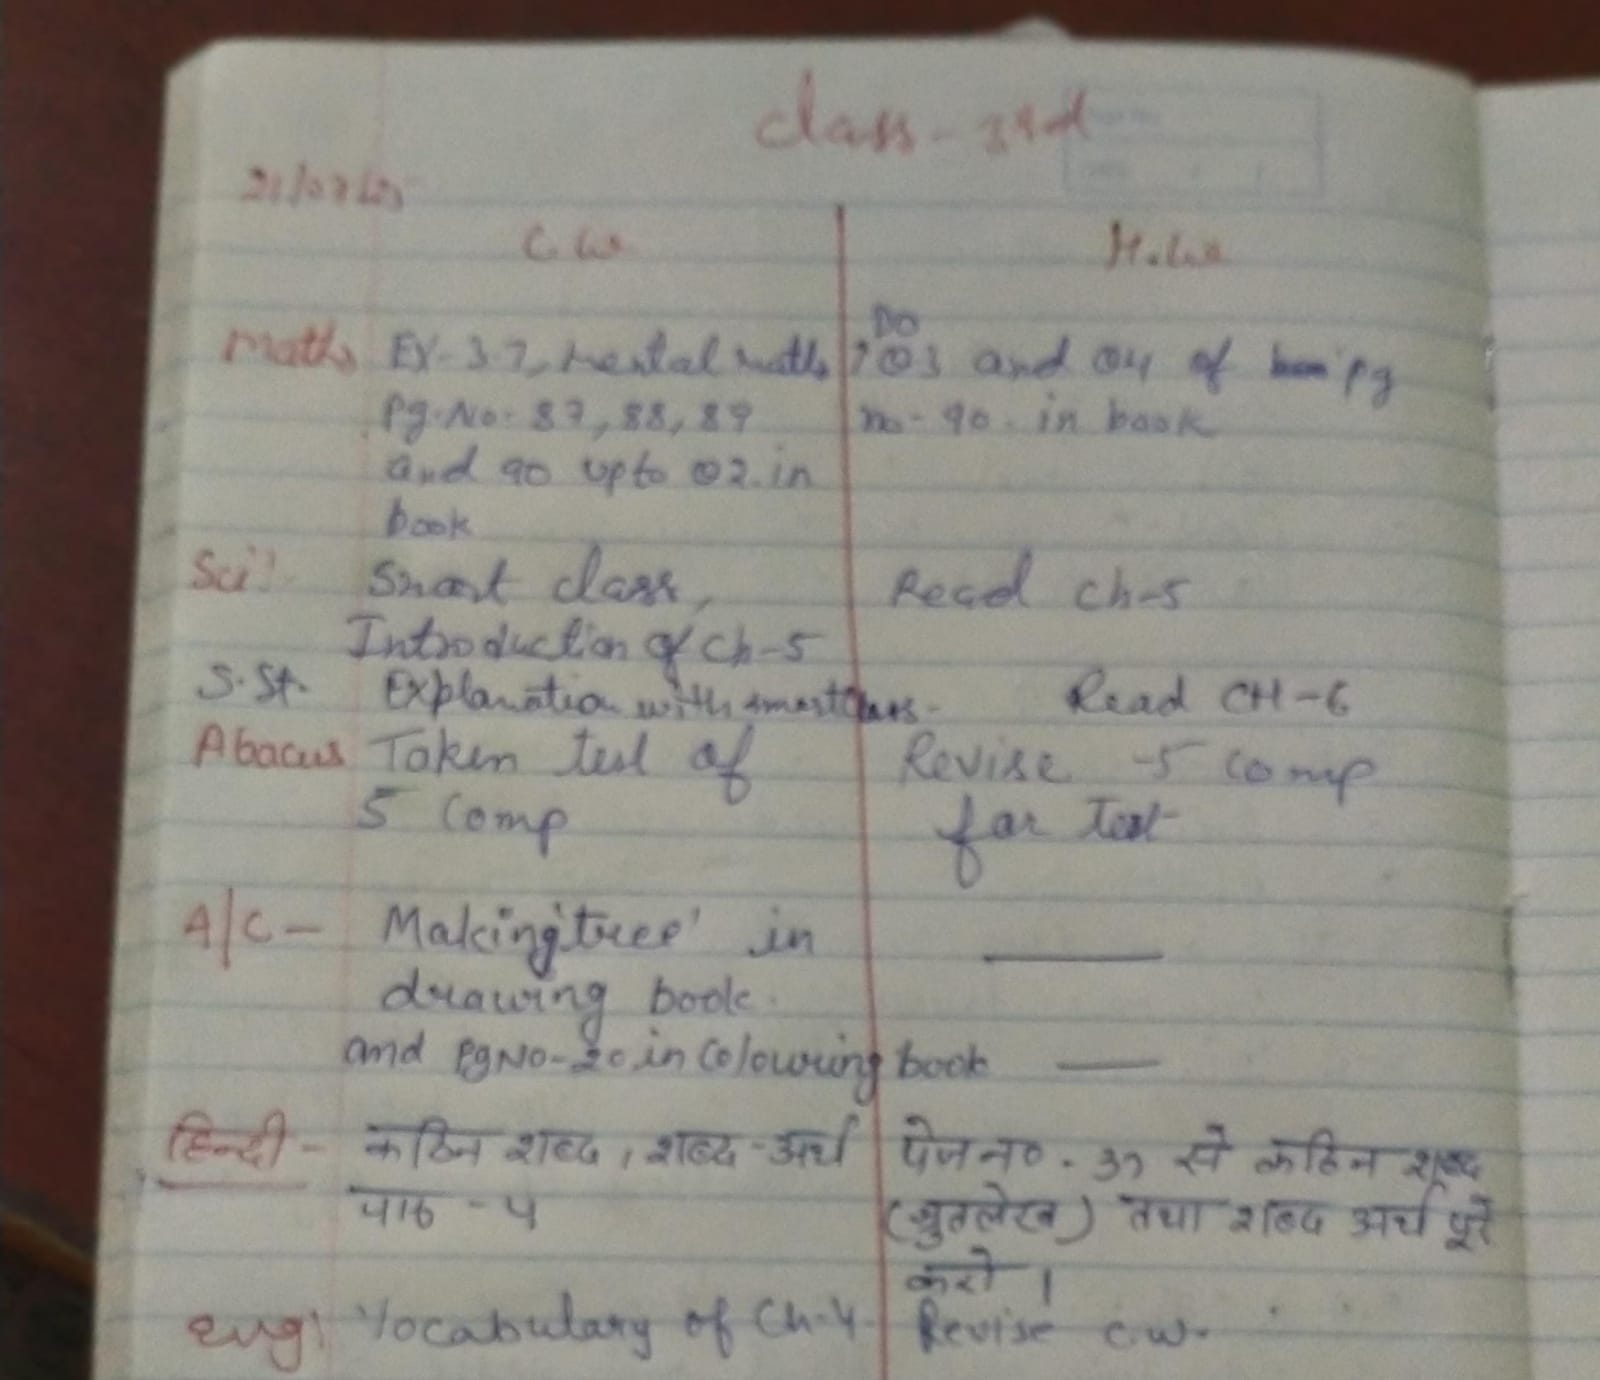 Class - 3rd
21/07/25
C.W H.W
Maths Ex-3.7, Mental maths DO Q3 and Q4 of pg
Pg.No- 87, 88, 89 no- 90. in book
and 90 upto Q2 in
book
Sci! Smart class, Read ch-5
Introduction of ch-5
S.St. Explanation with smart class. Read CH-6
Abacus Taken test of Revise -5 comp
5 comp for Test
A/C- Making 'tree' in
drawing book.
and Pg No-20 in Colouring book
हिन्दी - कठिन शब्द, शब्द-अर्थ पेज न०. 37 से कठिन शब्द
पाठ - 5 (श्रुतलेख) तथा शब्द अर्थ पूरे
करो ।
Eng! Vocabulary of Ch-4. Revise c.w.